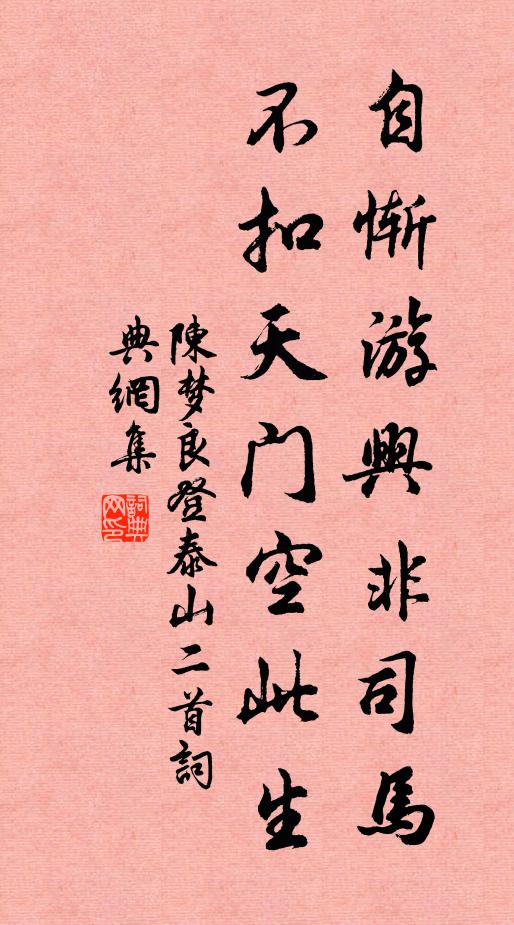 自惭游興非司馬
不扣天门空此生
陳梦良登泰山二首詞
典網集
詞典
网印